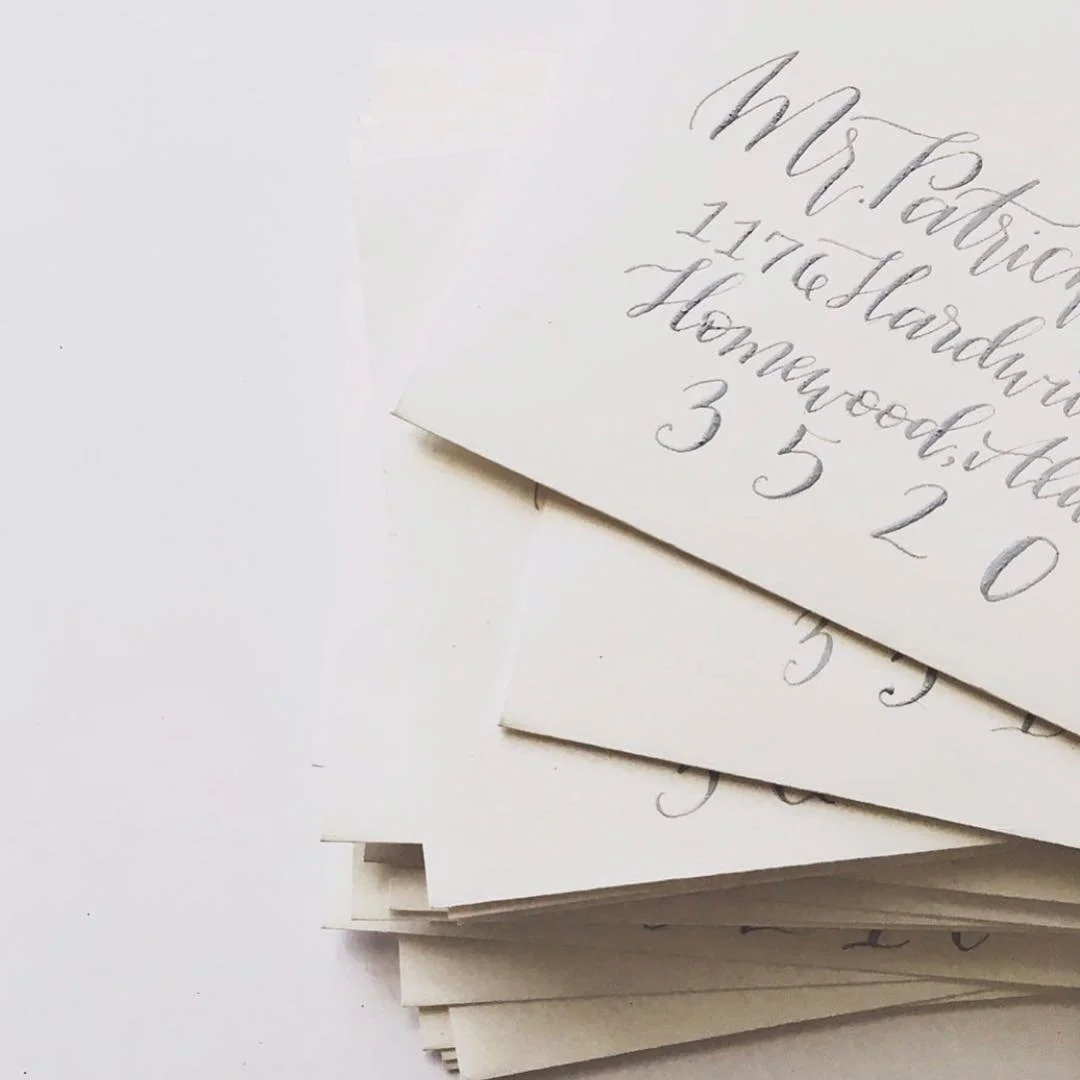 Mr. Patrick
1176 Hardwi
Homewood, Ala
3 5 2 0
3 5 2
3